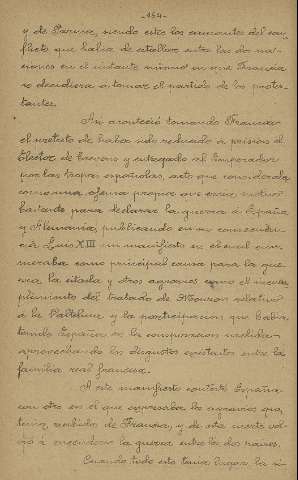 -154-
y de Parma, siendo estos los causantes del con-
flicto que habia de estallar entre las dos na-
ciones en el instante mismo en que Francia
se decidiera a tomar el partido de los protes-
tantes.
Asi aconteció tomando Francia
el pretexto de haber sido reducido a prision el
Elector de y entregado al Emperador
por las tropas españolas, acto que consideraba
como una ofensa propia que era motivo
bastante para declarar la guerra a España
y Alemania, publicando en su consecuen-
cia Luis XIII un manifiesto en el cual enu-
meraba como principal causa para la gue-
rra la citada y otros agravios como el incum-
plimiento del tratado de Monzon relativo
á la Valtelina y la participacion que habia
tenido España en la
aprovechando los disgustos existentes entre la
familia real francesa.
A este manifiesto contestó España
con otro en el que expresaba los agravios que
tenia recibidos de Francia, y de esta suerte vol-
vió á encenderse la guerra entre los dos paises.
Cuando todo esto tenia lugar la si-